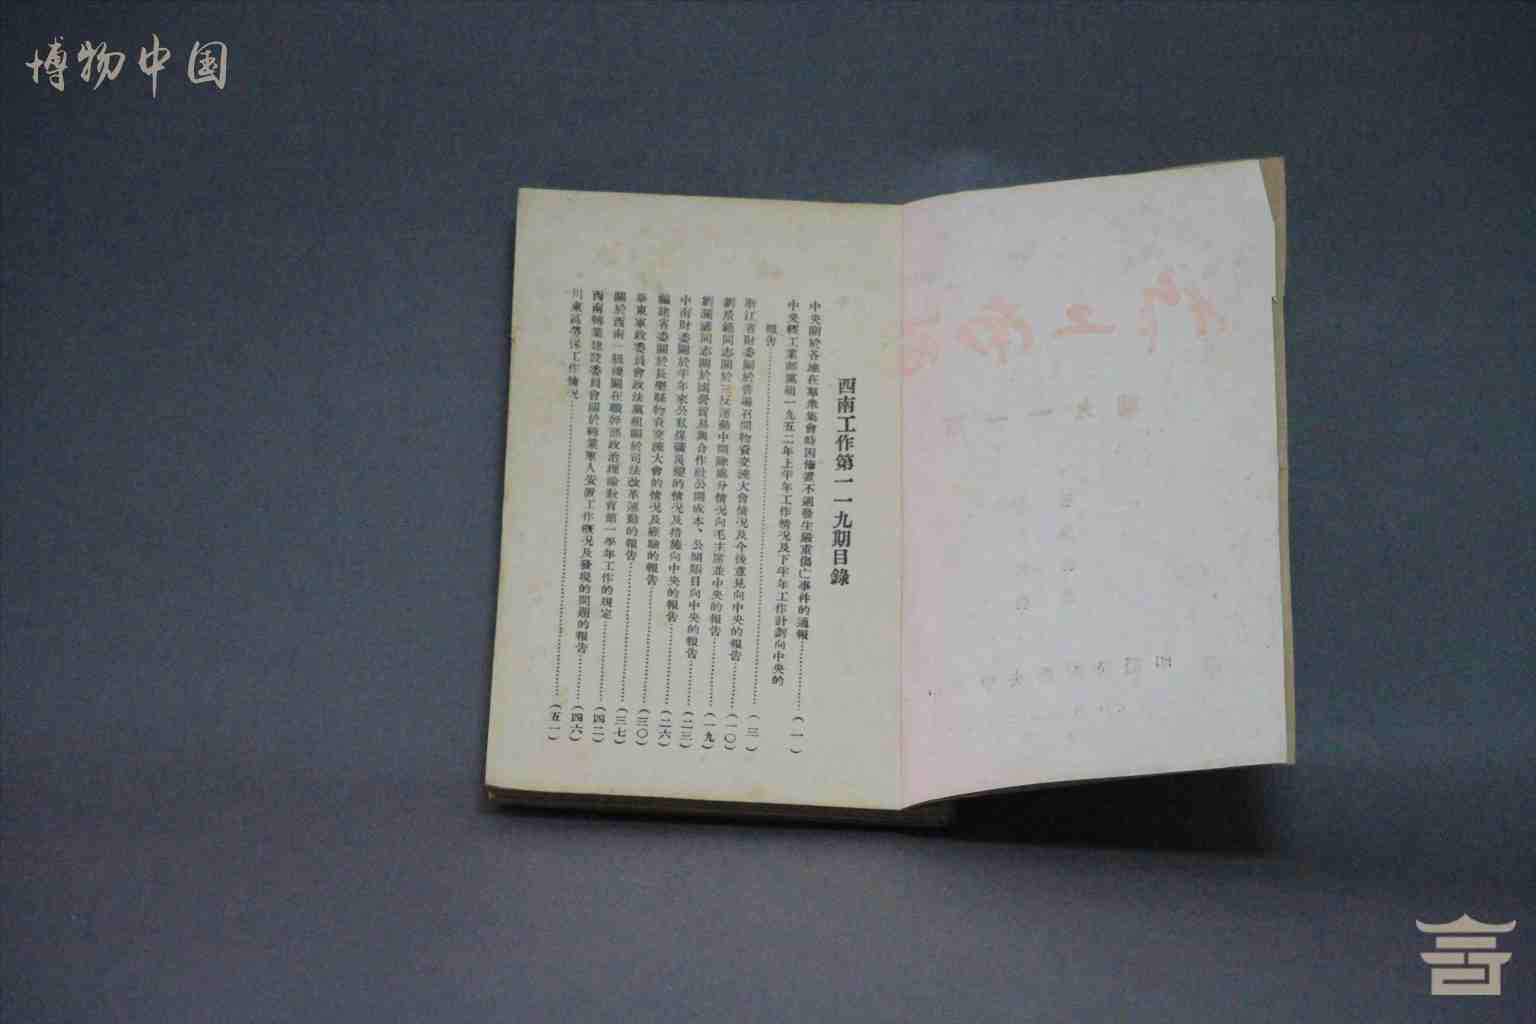 博物中国
西南工作第一一九期目錄
中央關於各地在羣衆集會時因佈置不週發生嚴重傷亡事件的通報……(一)
中央輕工業部黨組一九五二年上半年工作情况及下半年工作計劃向中央的
報告……(三)
浙江省財委關於普遍召開物資交流大會情况及今後意見向中央的報告……(一〇)
劉景範同志關於三反運動中開除處分情况向毛主席並中央的報告……(一九)
劉瀾濤同志關於國營貿易與合作社公開成本、公開賬目向中央的報告……(二三)
中南財委關於半年來公私煤礦災變的情况及措施向中央的報告……(二六)
福建省委關於長樂縣物資交流大會的情况及經驗的報告……(三〇)
華東軍政委員會政法黨組關於司法改革運動的報告……(三七)
關於西南一級機關在職幹部政治理論教育第一學年工作的規定……(四二)
西南轉業建設委員會關於轉業軍人安置工作概况及發現的問題的報告……(四六)
川東高等 工作情况……(五一)